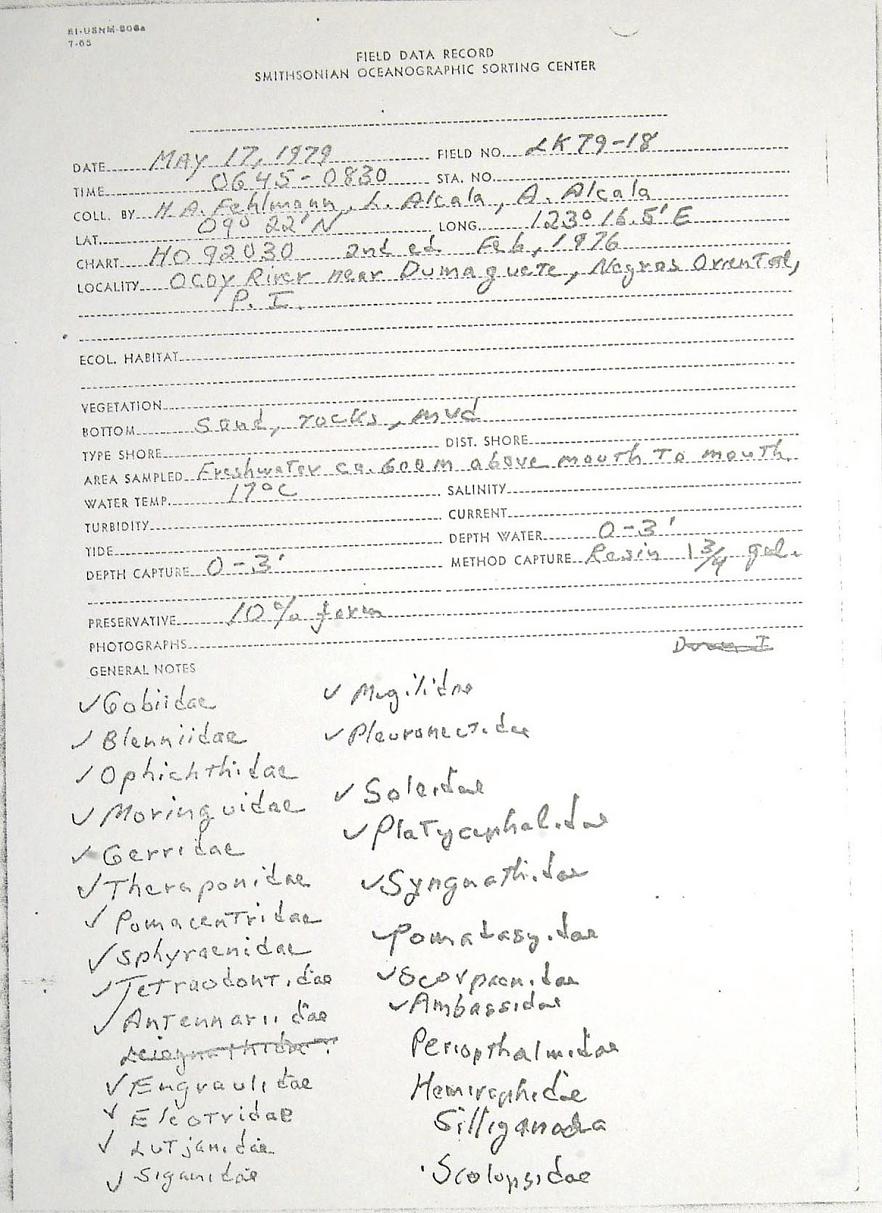 SI-USNM-206a
7-65
FIELD DATA RECORD
SMITHSONIAN OCEANOGRAPHIC SORTING CENTER
DATE MAY 17, 1979 FIELD NO. LK 79-18
TIME 0645-0830 STA. NO.
COLL. BY H.A. Fehlmann, L. Alcala, A. Alcala
LAT. 09° 22' N LONG. 123° 16.5' E
CHART HO 92030 2nd ed Feb, 1976
LOCALITY Ocoy River near Dumaguete, Negros Oriental,
P. I.
ECOL. HABITAT
VEGETATION
BOTTOM Sand, rocks, mud
TYPE SHORE DIST. SHORE
AREA SAMPLED Freshwater ca. 600 m above mouth to mouth.
WATER TEMP. 17°C SALINITY
TURBIDITY CURRENT
TIDE DEPTH WATER 0-3'
DEPTH CAPTURE 0-3' METHOD CAPTURE Resin 1 3/4 gal.
PRESERVATIVE 10% form
PHOTOGRAPHS
GENERAL NOTES
✓ Gobiidae
✓ Blenniidae
✓ Ophichthidae
✓ Moringuidae
✓ Gerridae
✓ Theraponidae
✓ Pomacentridae
✓ Sphyraenidae
✓ Tetraodontidae
✓ Antennariidae
Leiognathidae?
✓ Engraulidae
✓ Eleotridae
✓ Lutjanidae
✓ Siganidae
✓ Mugilidae
✓ Pleuronectidae
✓ Soleidae
✓ Platycephalidae
✓ Syngnathidae
✓ Pomadasyidae
✓ Scorpaenidae
✓ Ambassidae
Periopthalmidae
Hemiraphidae
Scolopsidae